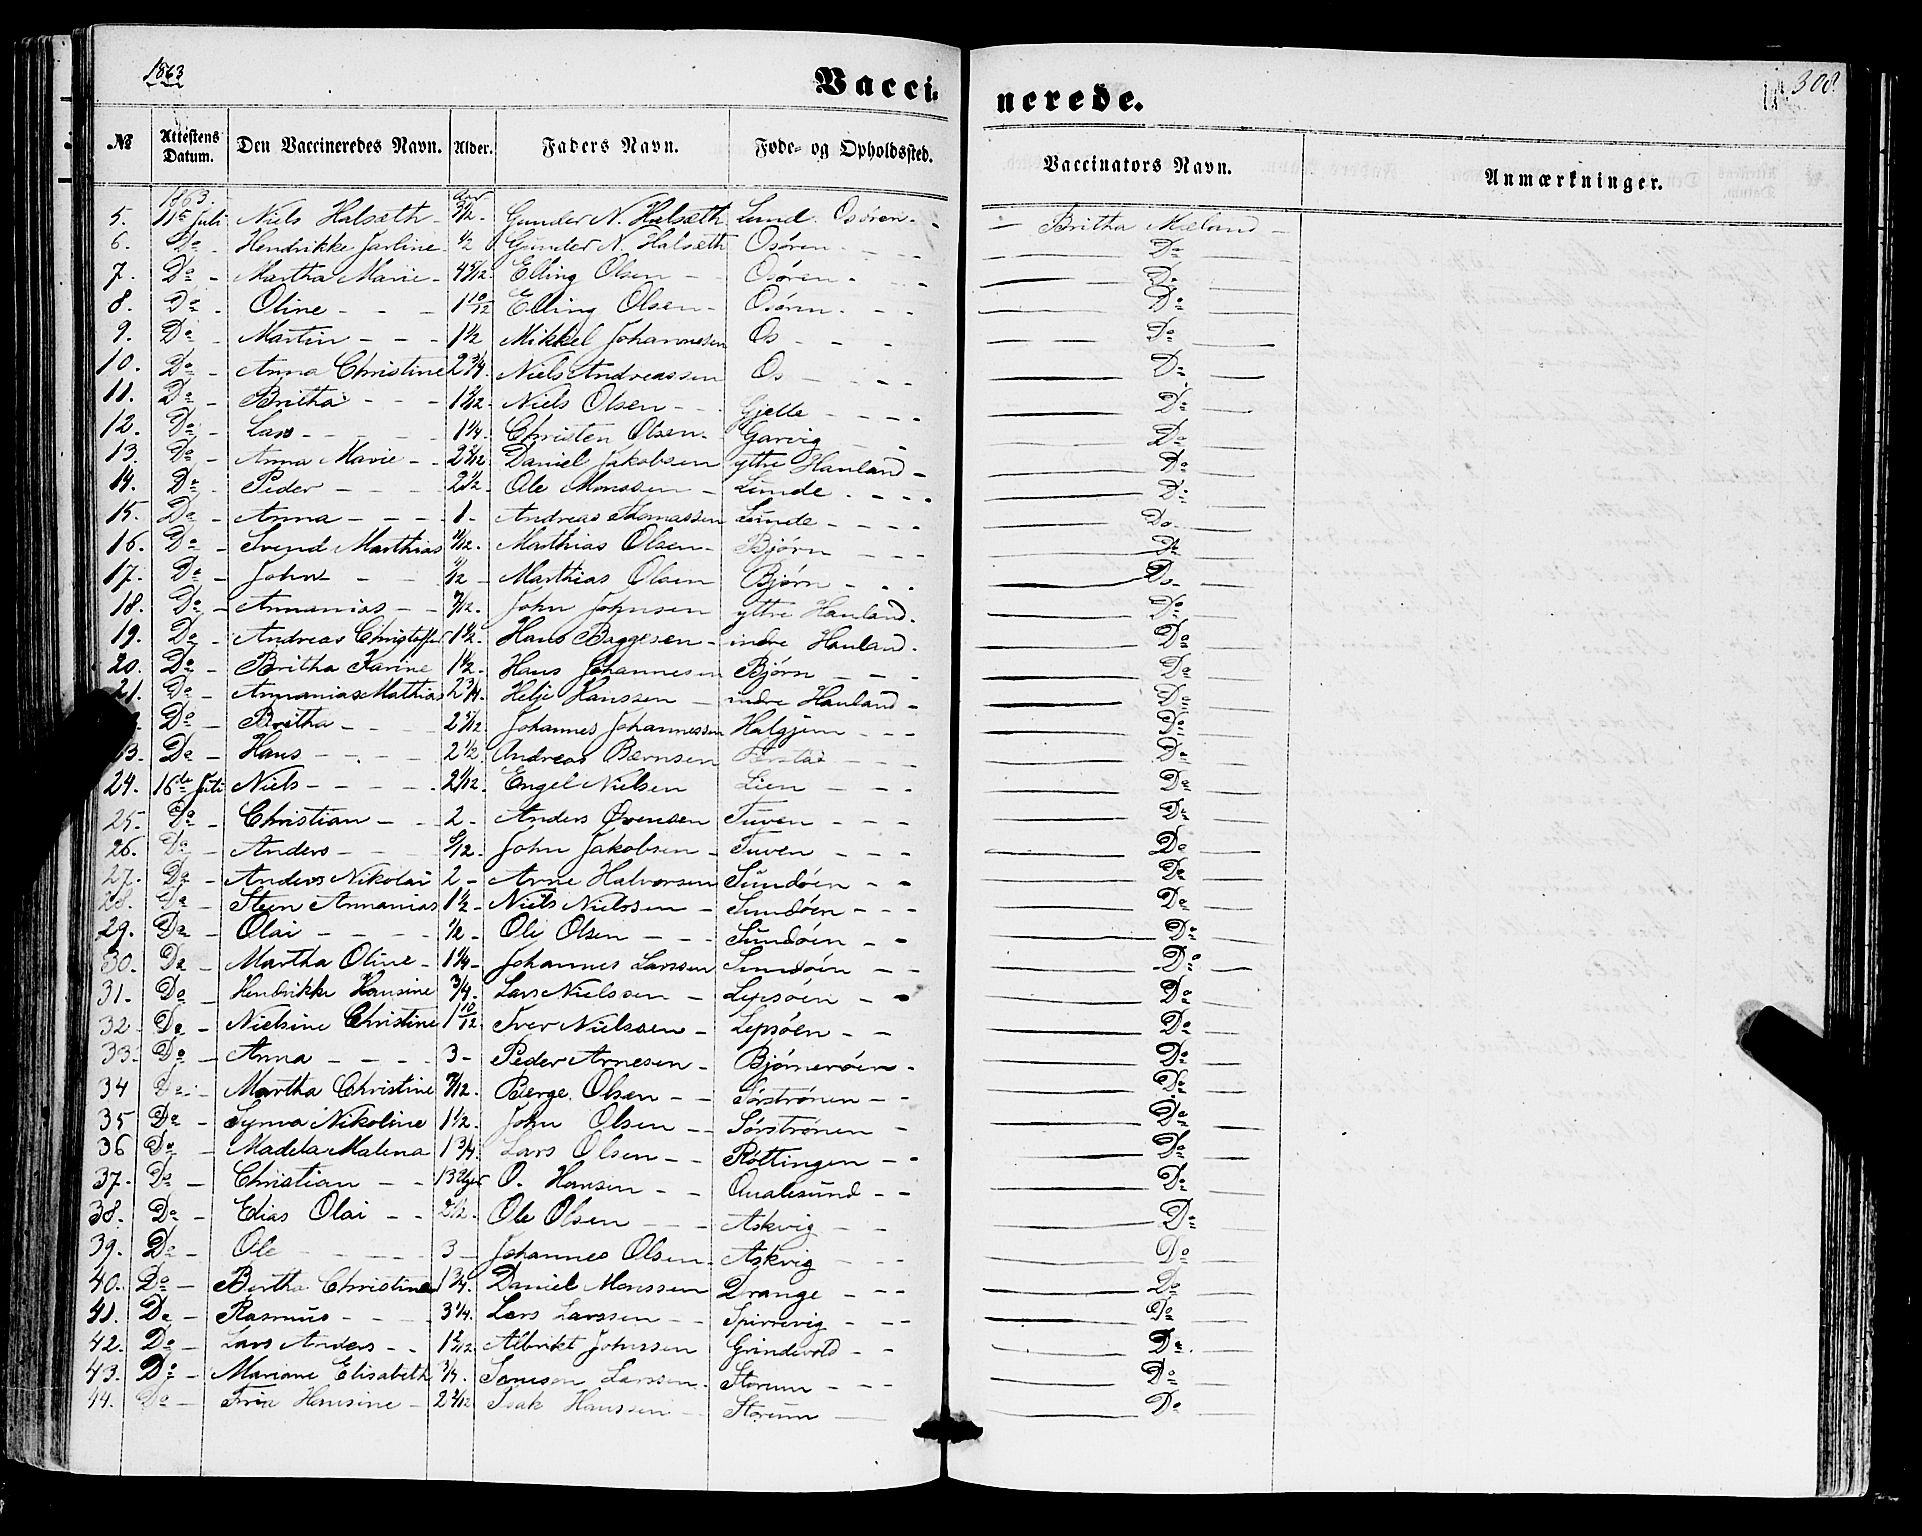 1863
Vacci- nerede.
308.
№ Attestens Datum. Den Vaccineredes Navn. Alder. Faders Navn. Føde- og Opholdssted. Vaccinators Navn. Anmærkninger.
1863. Aar
5. 11te Juli Niels Halsæth - Gunder N. Halsæth Lund. Osören - Britha Mæland -
6. Do Hendrikke Jarline - 1/2 Gunder N. Halsæth Osören - Do
7. Do Martha Marie - Elling Olsen - Osören - Do
8. Do - Oline - 1 10/12 Elling Olsen - Osören - Do
9. Do - Martin - 1 1/2 Mikkel Johannessen Os - Do
10. Do - Anna Christine 2 3/4 Niels Andreassen Os - Do
11. Do - Britha - Niels Olsen - Gjelle - Do
12. Do - Lars - 1 1/4 Christen Olsen - Garvig - Do
13. Do - Anna Marie - Daniel Jakobsen ytre Hauland - Do
14. Do - Peder - 2 1/2 Ole Monssen - Lunde - Do
15. Do - Anna - 1 - Andreas Thomassen Lunde - Do
16. Do - Svend Marthias Marthias Olsen - Bjørn - Do
17. Do - John - Marthias Olsen Bjørn - Do
18. Do - Annanias - John Johnsen ytre Hauland - Do
19. Do - Andreas Christoffer 1 1/2 Hans Baggesen - indre Hauland - Do
20. Do - Britha Karine 1 1/2 Hans Johannesen Bjørn - Do
21. Do - Annanias Mathias 2 3/4 Helje Hanssen - indre Hauland - Do
Do - Britha - Johannes Johannessen Halgjem - Do
Do - Hans - 2 1/2 Andreas Bærnsen - Do
24. 16de Juli Niels - Engel Nielsen Lien - Do
25. Do - Christian - 2 - Anders Øvensen Tuven - Do
26. Do - Anders - John Jakobsen - Tuven - Do
27. Do - Anders Nikolai 2 - Arne Halvorsen Sundöen - Do
28. Do - Steen Annanias 1 1/2 - Niels Nielssen - Sundöen - Do
29. Do - Olai - 1/2 - Ole Olsen - Sundöen - Do
30. Do - Martha Oline - 1 1/4 - Johannes Larssen Sundöen - Do
31. Do - Hendrikke Hansine 3/4. Lars Nielssen - Lepsöen - Do
32. Do - Nielsine Christine 1 10/12. Iver Nielssen - Lepsöen - Do
33. Do - Anna - 3 - Peder Arnesen - Bjørneröen - Do
34 Do - Martha Christine Børge Olsen - Sørstrønen - Do
35 Do - Syrna Nikoline 1 1/2. John Olsen - Sørstrønen - Do
36 Do - Madela Malena 1 3/4. Lars Olsen - Röttingen - Do
37. Do - Christian - 13 Uger O. Hansen - Qualesund - Do
38. Do - Elias Olai - 2 1/2. Ole Olsen - Askvig - Do
39. Do - Ole - 3 - Johannes Olsen - Askvig - Do
40. Do - Bertha Christine 1 3/4. Daniel Monssen Drange - Do
41. Do - Rasmus - 3 1/4. Lars Larssen - Spirrevig - Do
42. Do - Lars Anders - Albrikt Johnssen Grindevold - Do
43. Do - Mariane Elisabeth 3/4. Samson Larssen - Storum - Do
44. Do - Hansine - Isak Hanssen - Storum - Do